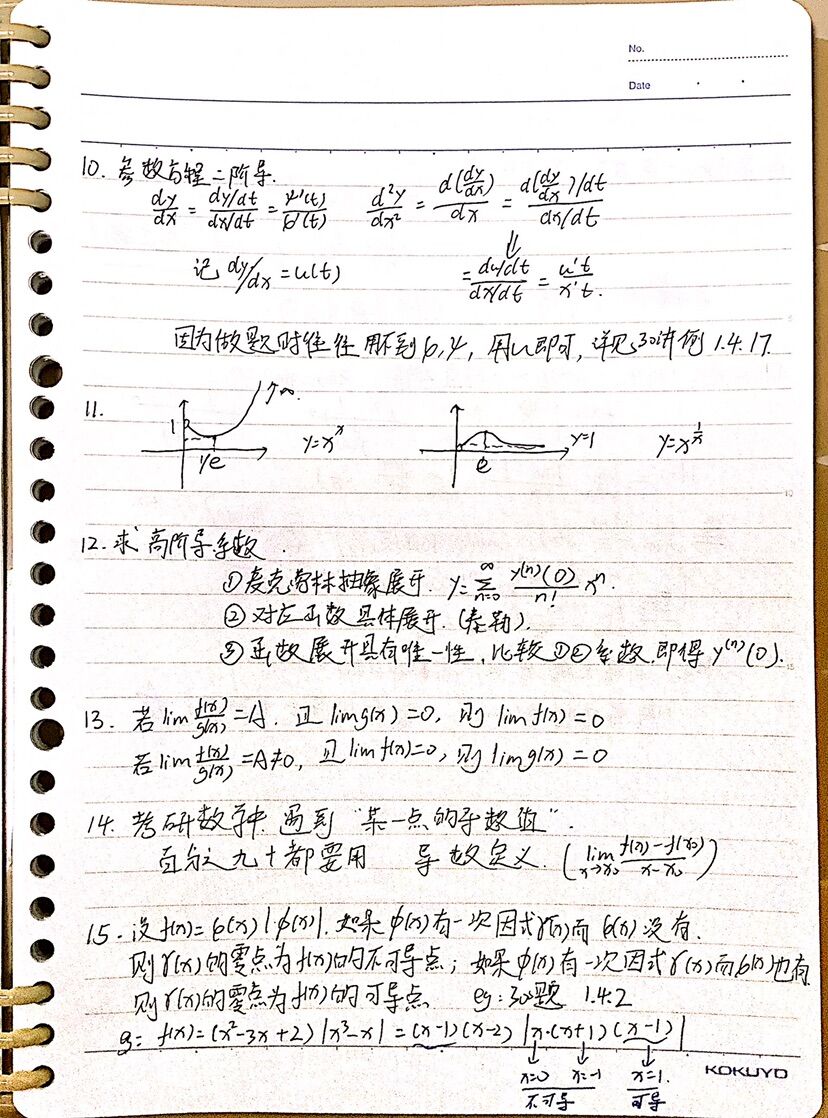 No.
Date
10. 参数方程二阶导.
dy/dx = (dy/dt)/(dx/dt) = ψ'(t)/φ'(t)  d²y/dx² = d(dy/dx)/dx = (d(dy/dx)/dt)/(dx/dt)
⇓
记 dy/dx = u(t)  = (du/dt)/(dx/dt) = u't/x't.
因为做题时往往用不到φ,ψ, 用u即可, 详见30讲例1.4.17.
11. 1 1/e ↗∞. y=x^x  e y=1 y=x^(1/x)
12. 求高阶导系数.
① 麦克劳林抽象展开. y=∑_{n=0}^{∞} (y^(n)(0)/n!) x^n.
② 对左函数具体展开. (泰勒).
③ 函数展开具有唯一性, 比较①②系数, 即得 y^(n)(0).
13. 若 lim f(x)/g(x) = A. 且 lim g(x) = 0, 则 lim f(x) = 0
若 lim f(x)/g(x) = A≠0, 且 lim f(x)=0, 则 lim g(x) = 0
14. 考研数学中, 遇到 "某一点的导数值".
百分之九十都要用 导数定义. (lim_{x→x₀} (f(x)-f(x₀))/(x-x₀))
15. 设 f(x) = φ(x)|ϕ(x)|. 如果 ϕ(x) 有一次因式 γ(x) 而 φ(x) 没有.
则 γ(x) 的零点为 f(x) 的不可导点; 如果 ϕ(x) 有一次因式 γ(x) 而 φ(x) 也有
则 γ(x) 的零点为 f(x) 的可导点. eg: 30题 1.4.2
f(x) = (x²-3x+2)|x³-x| = (x-1)(x-2)|x·(x+1)(x-1)|
↓ ↓ ↓
x=0 x=-1 x=1.
不可导 可导
KOKUYO